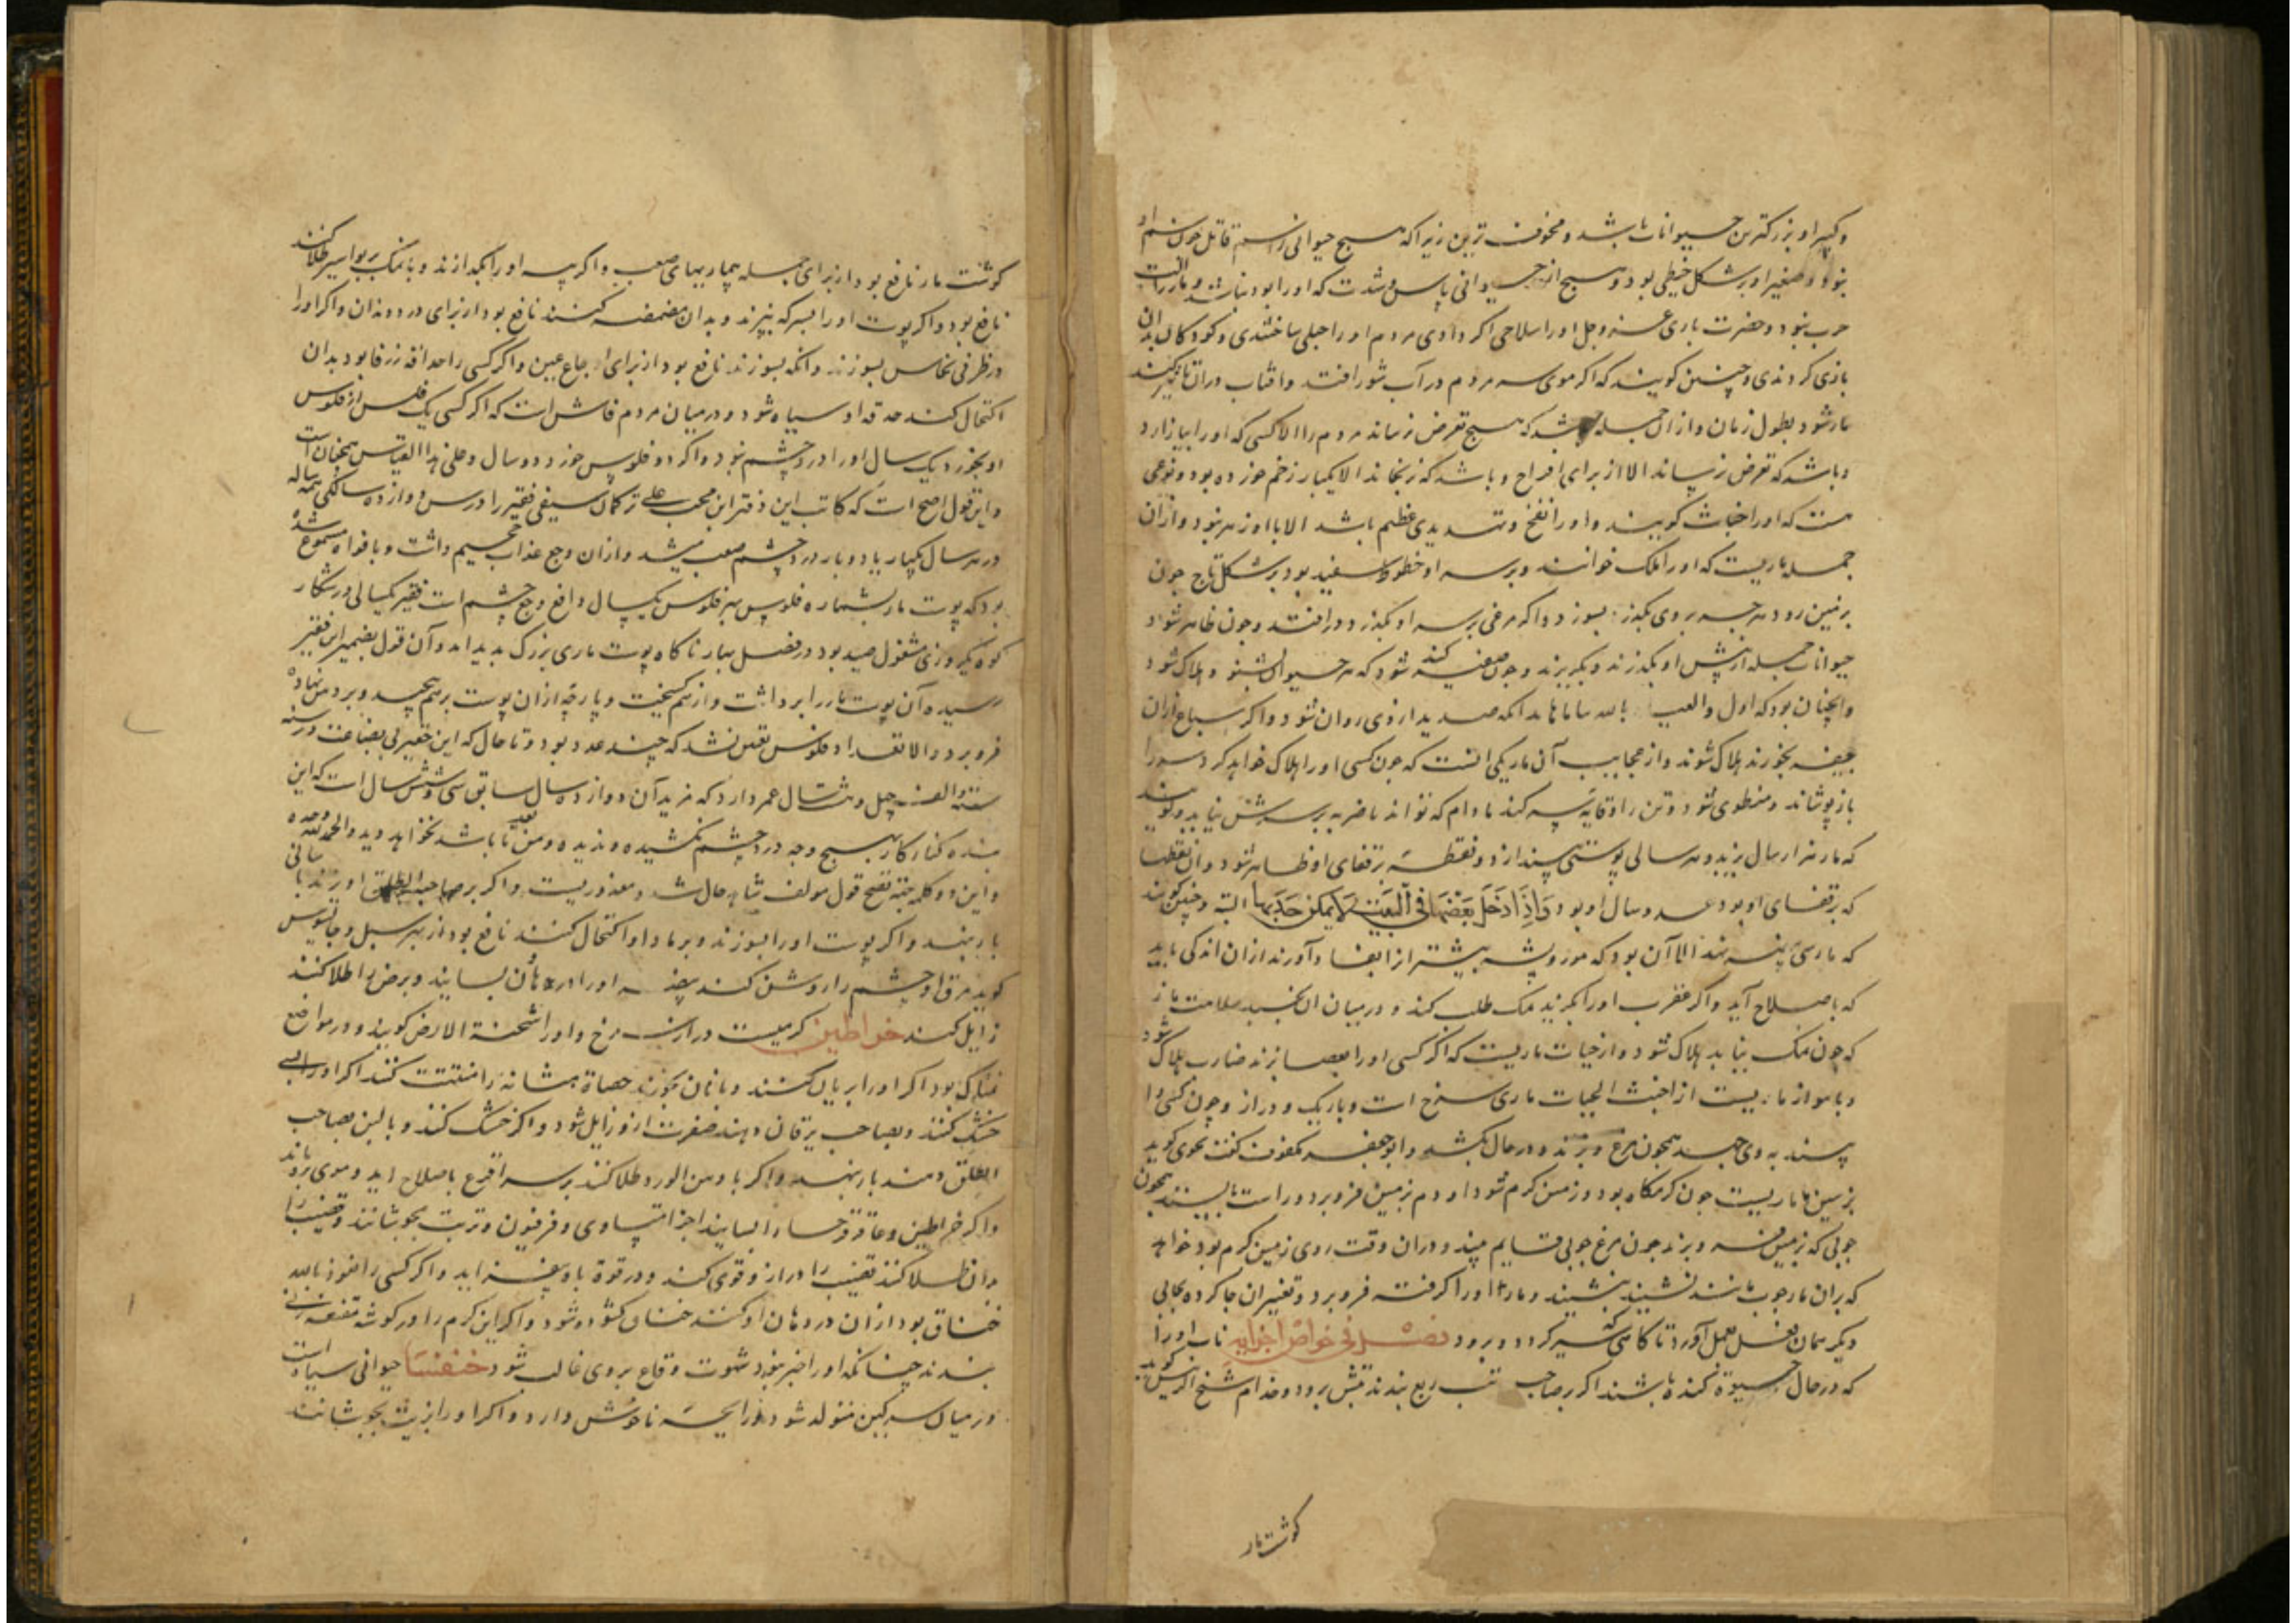 و کبیر او بزرکترین حیوانات باشد و مخوف ترین زیرا که هیچ حیوانی را سم قاتل چون سم او
نبود و صغیر او بر شکل خیطی بود و هیچ از حیوانی
حرب نبود و حضرت باری عز و جل او را سلاحی اکر دادی مردم او را حبلی ساختندی و کودکان بدان
بازی کردندی و چنین کویند که اکر موی سر مردم در آب شور افتد و افتاب دران تاثیر کند
مار شود بطول زمان و از ان جمله باشد که هیچ تعرض نرساند مردم را الا کسی که او را بیازارد
و باشد که تعرض نرساند الا از برای افراخ و باشد که نرنجاند الا یکبار زخم خورده بود و نوعی
هست که او را خباث کویند و او را نفخ و تهدیدی عظیم باشد الا با او زهر نبود و ازان
جمله ماریست که او را ملک خوانند و بر سر او خطوط سفید بود بر شکل تاج چون
بر زمین رود هر چه بر وی بکذرد بسوزد و اکر مرغی بر سر او بکذرد در افتد و چون ظاهر شود
حیوانات جمله از پیش او بکذرند و بکریزند و چون صفیر کند شود که هر حیوان بشنود هلاک شود
صدید از وی روان شود و اکر سباع ازان
جیفه بخورند هلاک شوند و از عجایب آن مار یکی انست که چون کسی او را هلاک خواهد کرد سر را
باز پوشاند و منطوی شود و تن را وقایه سر کند مادام که تواند تا ضربه بر سرش نیاید و کویند
که مار هزار سال بزید و هر سالی پوستی بیندازد و نقطه بر قفای او ظاهر شود و ان نقطها
که بر قفای او بود عدد سال او بود وَاِذَا دَخَلَ بَعْضُهَا فی الْبَیْت لا یمکن جَذبها البته و چنین کویند
که مار سی بیضه نهد الا آن بود که مور و پشه بیشتر از ان فساد آورند ازان اندکی باشد
که باصلاح آید و اکر عقرب او را بکزد نمک طلب کند و در میان ان بخسبد سلامت یابد
که چون نمک نیابد هلاک شود و از حیات ماریست که اکر کسی او را بعصا بزند ضارب هلاک شود
از اخبث الحیات ماری سرخ است و باریک و دراز و چون کسی را
بیند بر وی جهد همچون مرغ و بزند و در حال بکشد و ابو جعفر مکفوف نحوی کوید
بزمین ما ماریست چون کرمکاه بود و زمین کرم شود او دم بزمین فرو برد و راست بایستد همچون
چوبی که بزمین و بزند چون مرغ چوبی قایم بیند و دران وقت روی زمین کرم بود خواهد
که بران مار چوب مانند نشیند بنشیند و مار او را کرفته فرو برد و تغییر ان جا کرده بجای
دیکر همان فعل بعمل آورد تا کاهی که سیر کردد و برود فصل فی خواص اجزایه ناب او را
که در حال حیوة کنده باشند اکر بر صاحب تب ربع بندند تبش برود و مدام شیخ الرئیس کوید
کوشت مار
کوشت مار نافع بود از برای جمله بیماریهای صعب و اکر پیه او را بکدازند و با نمک بر بواسیر طلا کنند
نافع بود و اکر پوست او را بسرکه بپزند و بدان مضمضه کنند نافع بود از برای درد دندان و اکر او را
در ظرفی نحاس بسوزند و انکه بسوزند نافع بود از برای اوجاع عین و اکر کسی را حداقه زرقا بود بدان
اکتحال کند حدقه او سیاه شود و در میان مردم فاش است که اکر کسی یک فلس از فلوس
او بخورد یک سال او را درد چشم نبود و اکر دو فلوس خورد دو سال و علی هذا القیاس همچنان است
و این قول اصح است که کاتب این دفتر ابن محب علی ترکمان سیفی فقیر را در سن دوازده سالکی
در هر سال یکبار یا دو بار درد چشم صعب میشد و ازان وجع عذاب جحیم داشت و بافواه مسموع شده
بود که پوست مار بشماره فلوس هر فلوس یکسال دافع وجع چشم است فقیر یکسالی در شکار
کوه بکیر روزی مشغول صید بود در فصل بهار ناکاه پوست ماری بزرک بدید امد و آن قول بضمیر این فقیر
رسیده آن پوست مار را برداشت و از هم کسیخت و پارچه ازان پوست بر هم پیچید و بر دهن نهاده
فرو برد الا تعداد فلوس تعین نشد که چند عدد بود و تا حال که این حقیر بی بضاعت در سنه
و الف چهل و هشت سال عمر دارد که مزید آن دوازده سال سابق سی و شش سال است که این
بنده کناه کار بهیچ وجه درد چشم نکشیده و ندیده و من بعد تا باشد نخواهد دید والحمد لله وحده
و این دو کلمه جهة تصحیح قول مولف شاهد حال شد و معذوریست و اکر بر صاحب الطلق او بزندیا
بار بنهد و اکر پوست او را بسوزند و برماد او اکتحال کنند نافع بود از بهر سبل و جالینوس
کوید مرق او چشم را روشن کند بیضه او را در هاون بسایند و برص را طلا کنند
زایل کند خراطین کرمیست دراز سرخ و او را شحمة الارض کویند و در مواضع
نمناک بود اکر او را بریان کنند و با نان بخورند حصاة مثانه را مفتت کند اکر او را
خشک کنند و بصاحب یرقان دهند صفرت ازو زایل شود و اکر خشک کنند و بالین بصاحب
الطلق دهند بار بنهد و اکر با دهن الورد طلا کنند بر سر اقرع باصلاح اید و موی برویاند
و اکر خراطین و عاقرقرحا را بسایند اجزا متساوی و فرفیون و تربت بجوشانند و قضیب را
بدان طلا کنند قضیب را دراز و قوی کند و در قوة باه بیفزاید و اکر کسی را نعوذ بالله
خناق بود ازان در دهان او کنند خناق کشوده شود و اکر این کرم را در کوشه مقنعه زنی
بندند چنانکه او را خبر نبود شهوت وقاع بر وی غالب شود خنفسا حیوانی سیاه است
در میان سرکین متولد شود و رایحه ناخوش دارد و اکر او را بزیت بجوشانند